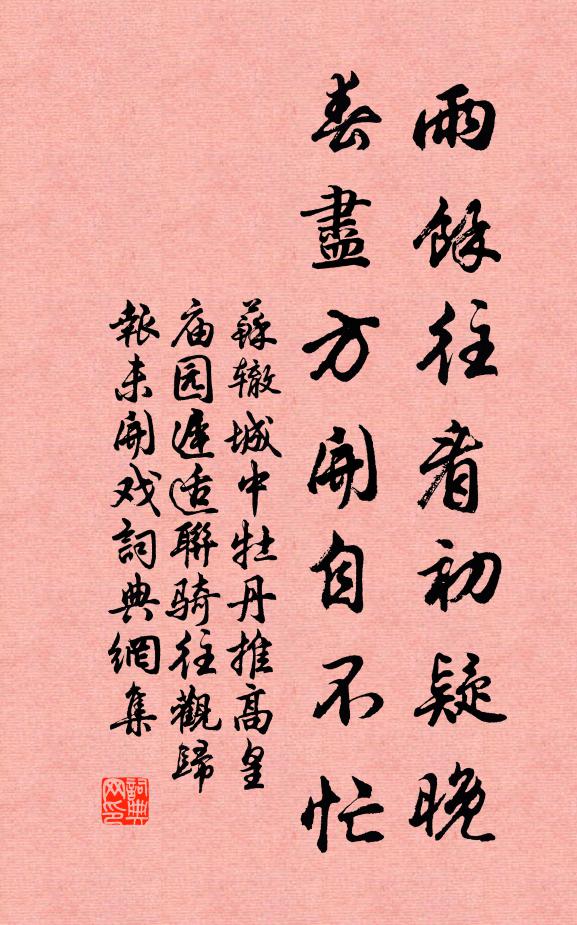 雨餘往看初疑晚
春盡方開自不忙
蘇辙城中牡丹推高皇
庙园遲适聯骑往觀歸
報未開戏詞典網集
詞典
网印